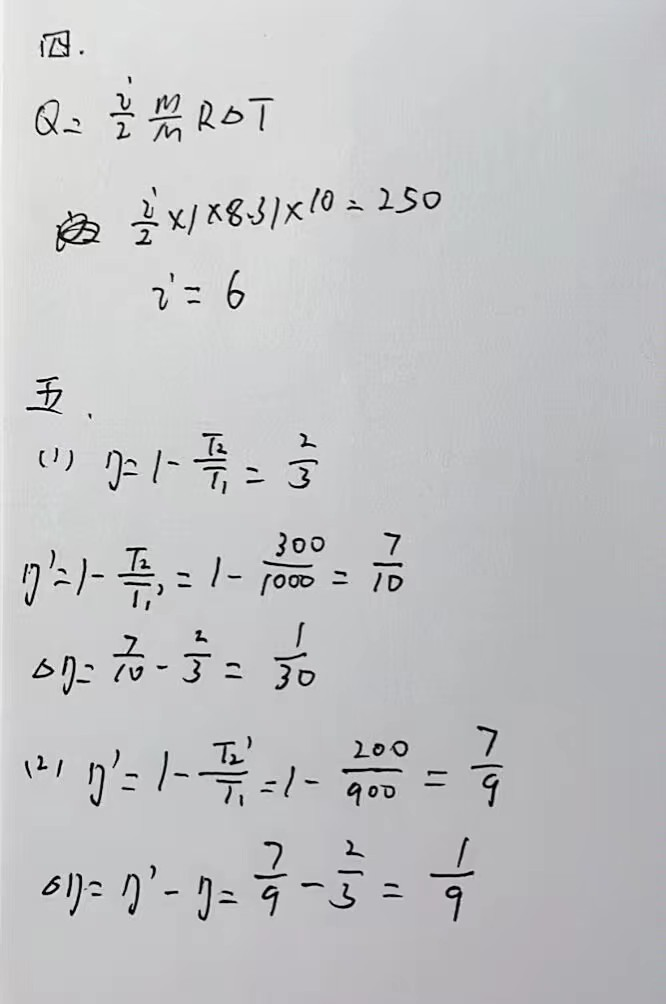 四.
Q = i/2 m/M RΔT
i/2 ×1×8.31×10 = 250
i = 6
五.
(1) η = 1 - T₂/T₁ = 2/3
η' = 1 - T₂/T₁' = 1 - 300/1000 = 7/10
Δη = 7/10 - 2/3 = 1/30
(2) η' = 1 - T₂'/T₁ = 1 - 200/900 = 7/9
Δη = η' - η = 7/9 - 2/3 = 1/9